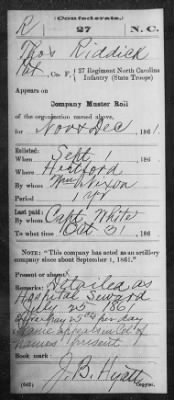 (Confederate.)
R 27 N.C.
Thos Riddick
Pvt, Co. F, 27 Regiment North Carolina
Infantry (State Troops)
Appears on
Company Muster Roll
of the organization named above,
for Nov & Dec, 1861.
Enlisted:
When Sept 1, 186
Where Hertford
By whom Wm Nixon
Period 1 yr
Last paid:
By whom Capt White
To what time Oct 31, 186
NOTE: "This company has acted as an artillery
company since about September 1, 1861."
Present or absent
Remarks: Detailed as
Hospital Steward
25 186
Extra pay 25 cts per day
Name appears
names present
Book mark:
J. B. Hyatt
(642) Copyist.